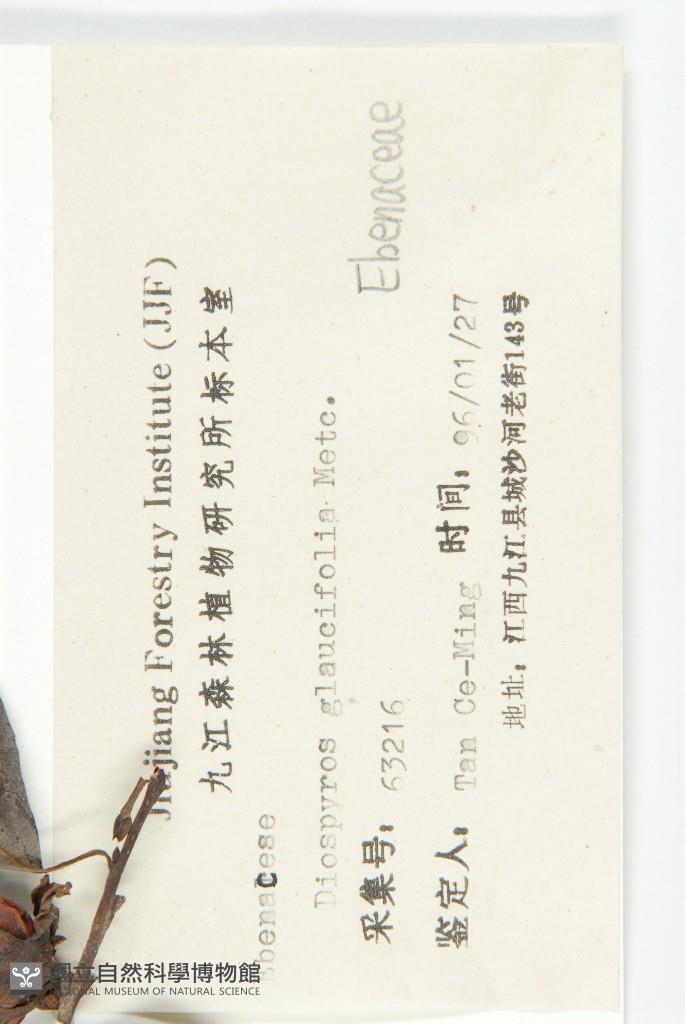 Jiujiang Forestry Institute (JJF)
九江森林植物研究所标本室
Ebenacese
Ebenaceae
Diospyros glaucifolia Metc.
采集号: 63216
鉴定人: Tan Ce-Ming 时间: 96/01/27
地址: 江西九江县城沙河老街143号
國立自然科學博物館
NATIONAL MUSEUM OF NATURAL SCIENCE